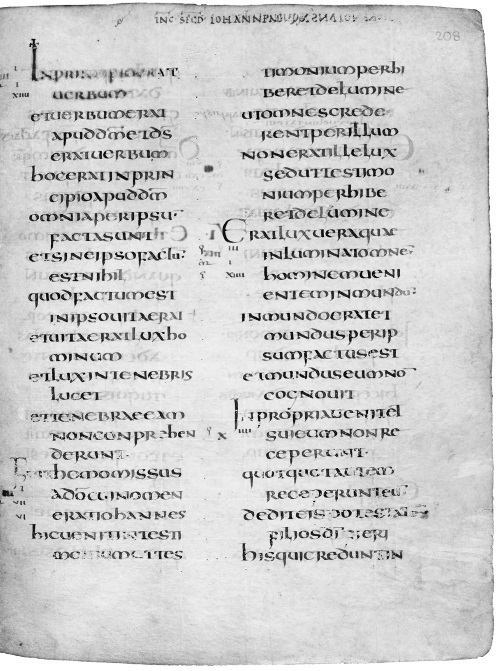 INC SECD IOHANN
208
INPRINCIPIOERAT
UERBUM
ETUERBUMERAT
APUDDM̅ETDS̅
ERATUERBUM
HOCERATINPRIN
CIPIOAPUDDM̅
OMNIAPERIPSU
FACTASUNT
ETSINEIPSOFACTU
ESTNIHIL
QUODFACTUMEST
INIPSOUITAERAT
ETUITAERATLUXHO
MINUM
ETLUXINTENEBRIS
LUCET
ETTENEBRAEEAM
NONCONPREHEN
DERUNT
HOMOMISSUS
ADO̅CUINOMEN
ERATIOHANNES
HICUENITINTESTI
MONIUMUTTES
TIMONIUMPERHI
BERETDELUMINE
UTOMNESCREDE
RENTPERILLUM
NONERATILLELUX
SEDUTTESTIMO
NIUMPERHIBE
RETDELUMINE
ERATLUXUERAQUAE
INLUMINATOMNE
HOMINEMUENI
ENTEMINMUNDU
INMUNDOERATET
MUNDUSPERIP
SUMFACTUSEST
ETMUNDUSEUMNO
COGNOUIT
INPROPRIAUENITET
SUIEUMNONRE
CEPERUNT
QUOTQUOTAUTEM
RECEPERUNTEU
DEDITEISPOTESTATE
FILIOSDI̅FIERI
HISQUICREDUNTIN